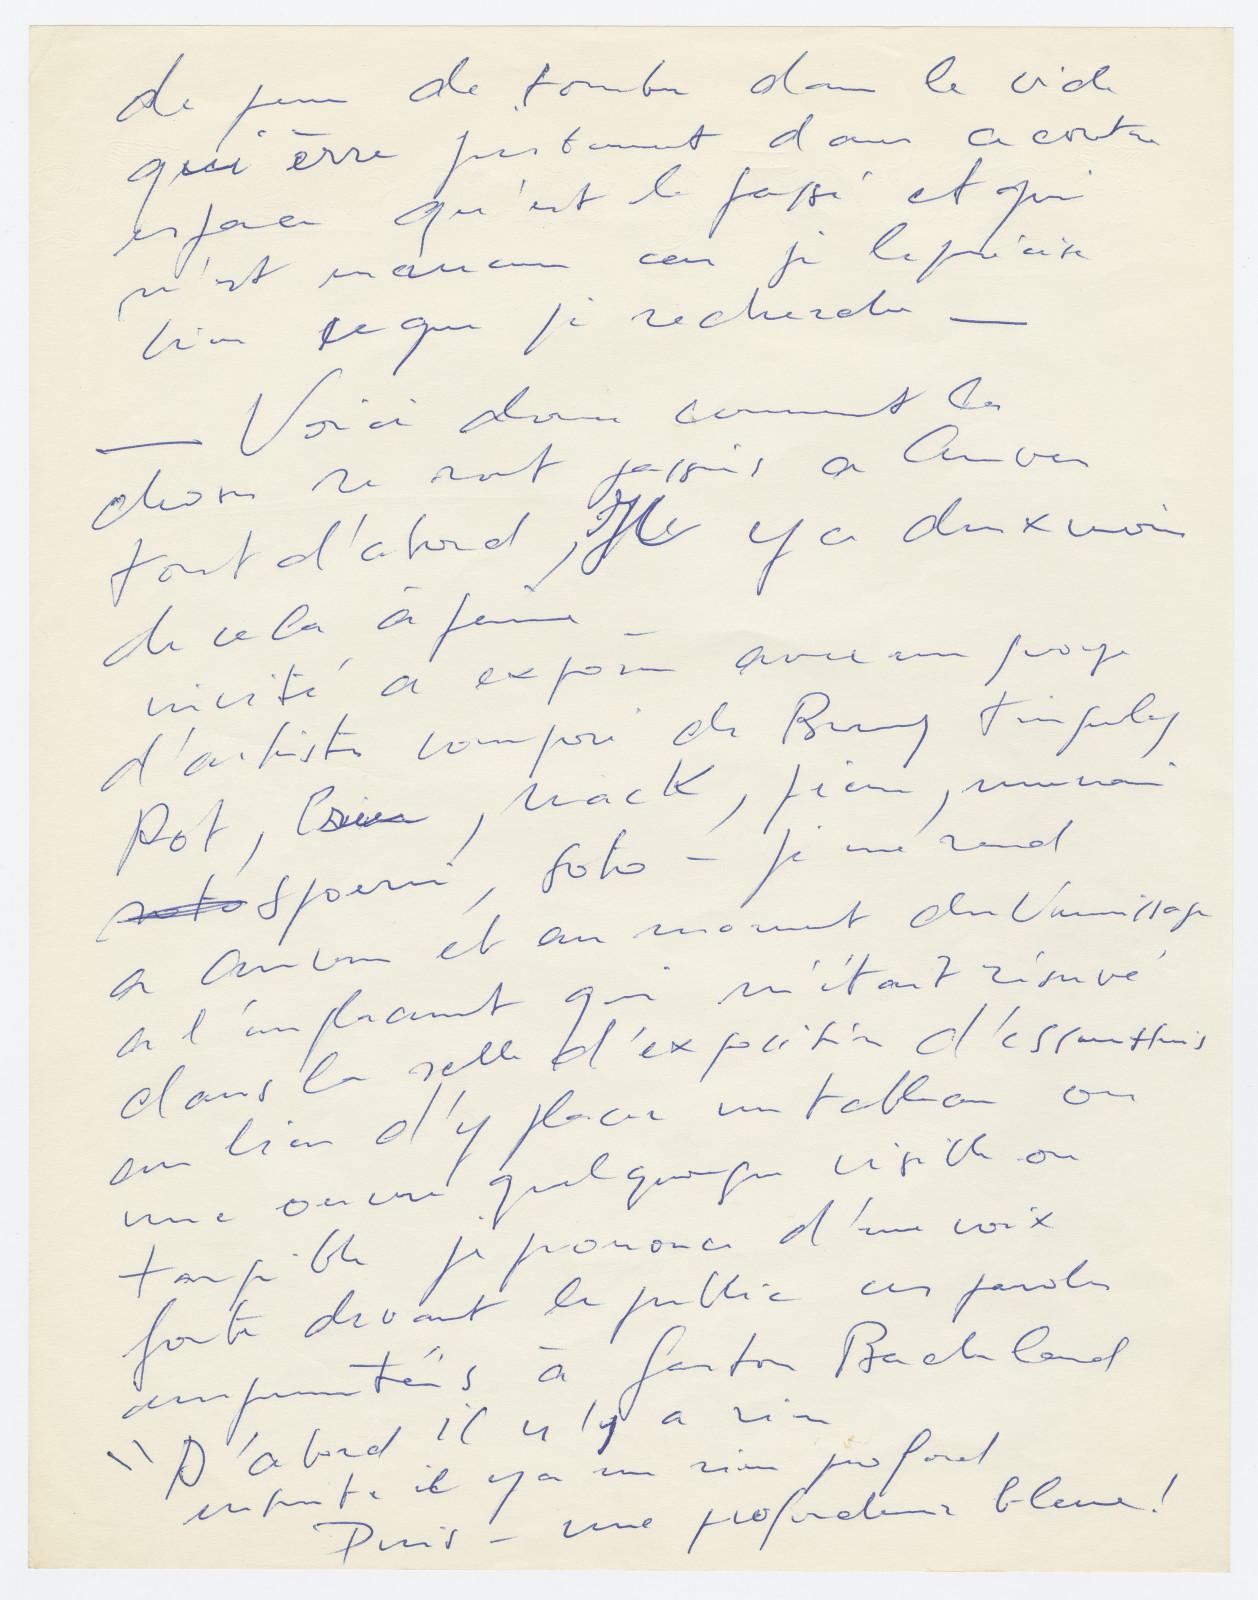 de peur de tomber dans le vide
qui èrre justement dans ce contre
espace qu'est le passé et qui
n'est aucun car je le précise
bien ce que je recherche —
— Voici donc comment les
choses se sont passés a Anvers
tout d'abord, Il y a deux mois
de cela à peine
invité a exposer avec un groupe
d'artistes composé de Bury Tinguely
Rot, Breer, Mack, Piene, Munari
Spoerri, Soto — je me rend
a Anvers et au moment du Vernissage
a l'emplacement qui m'était réservé
dans la salle d'exposition d'essenthuis
au lieu d'y placer un tableau ou
une oeuvre quelquonque visible ou
tangible je prononce d'une voix
forte devant le public ces paroles
empruntés à Gaston Bachelard
"D'abord il n'y a rien
ensuite il y a un rien profond
Puis — une profondeur bleue!